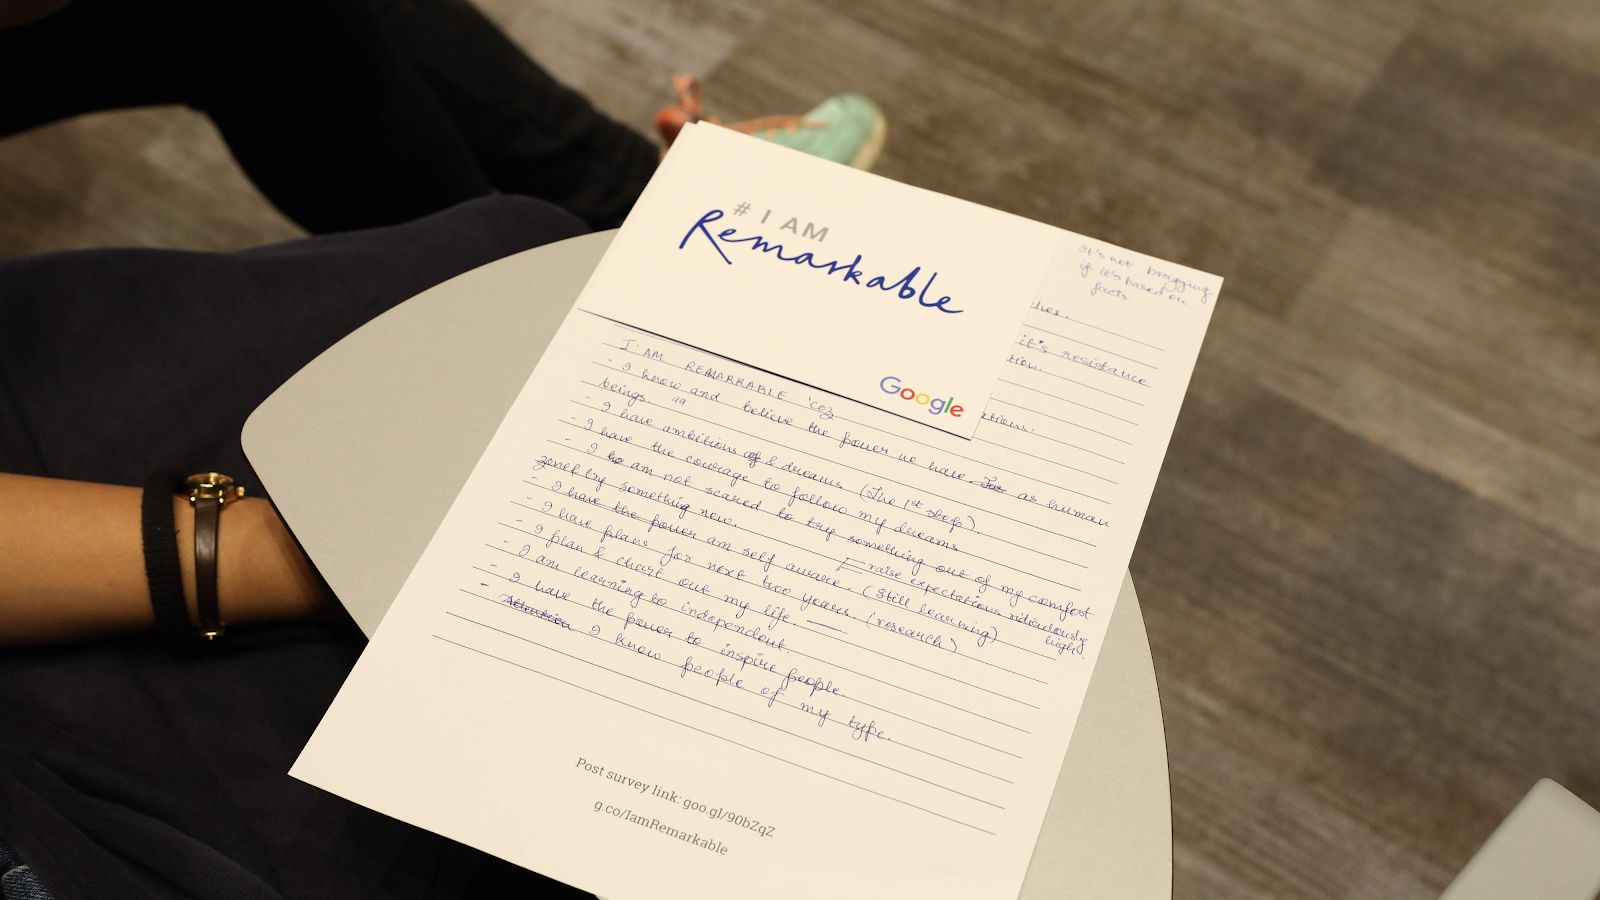 # I AM
Remarkable
Google
It's not bragging
if it's based on
facts.
it's resistance
I AM REMARKABLE 'coz
- I know and believe the power we have as human
beings.
- I have ambitions & dreams (The 1st step).
- I have the courage to follow my dreams
- I am not scared to try something out of my comfort
zone & try something new.
raise expectations ridiculously
high.
- I have the power am self aware. (Still learning)
- I have plans for next two years. (research)
- I plan & chart out my life
- I am learning to independent.
- I have the power to inspire people.
- Attention I know people of my type.
Post survey link: goo.gl/90bZqZ
g.co/IamRemarkable